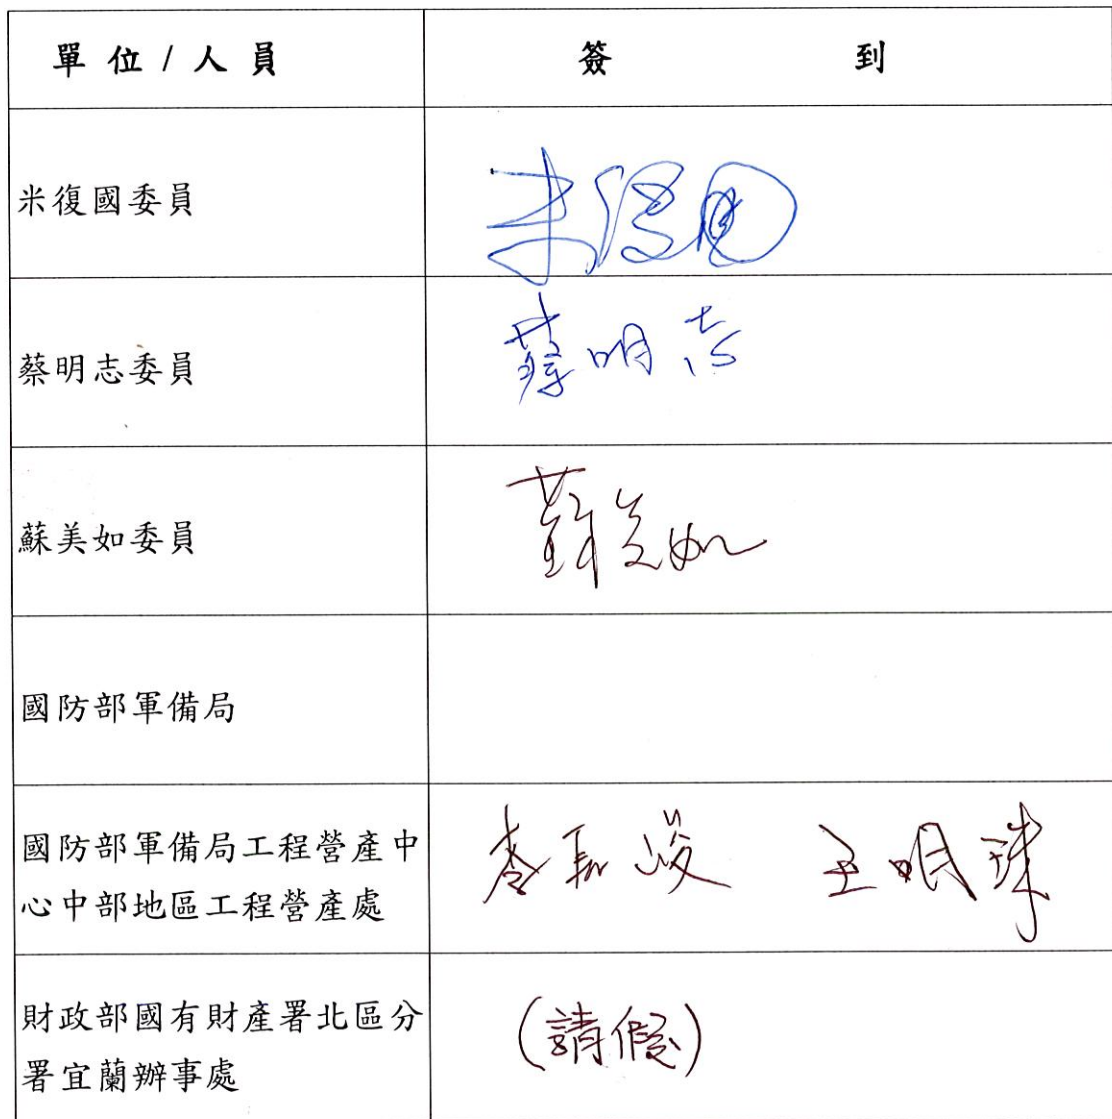 單位/人員 簽到
米復國委員 米復國
蔡明志委員 蔡明志
蘇美如委員 蘇美如
國防部軍備局
國防部軍備局工程營產中
心中部地區工程營產處 王明珠
財政部國有財產署北區分
署宜蘭辦事處 (請假)